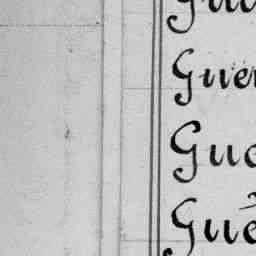 Gu
Guer
Gue
Gué